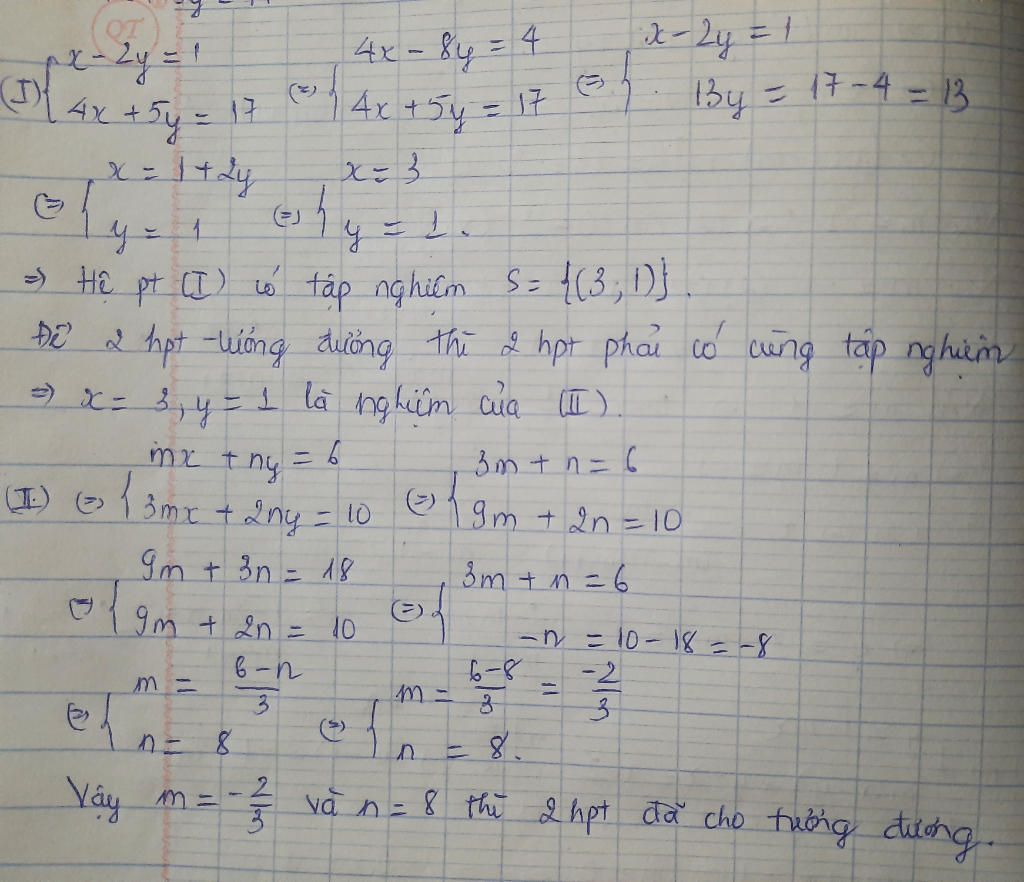 QT
(I) { x - 2y = 1 (=) { 4x - 8y = 4 (=) { x - 2y = 1
4x + 5y = 17 4x + 5y = 17 13y = 17 - 4 = 13
(=) { x = 1 + 2y (=) { x = 3
y = 1 y = 1.
=> Hệ pt (I) có tập nghiệm S = {(3; 1)}.
Để 2 hpt tương đương thì 2 hpt phải có cùng tập nghiệm
=> x = 3, y = 1 là nghiệm của (II).
(II) (=) { mx + ny = 6 (=) { 3m + n = 6
3mx + 2ny = 10 9m + 2n = 10
(=) { 9m + 3n = 18 (=) { 3m + n = 6
9m + 2n = 10 -n = 10 - 18 = -8
(=) { m = (6-n)/3 (=) { m = (6-8)/3 = -2/3
n = 8 n = 8.
Vậy m = -2/3 và n = 8 thì 2 hpt đã cho tương đương.